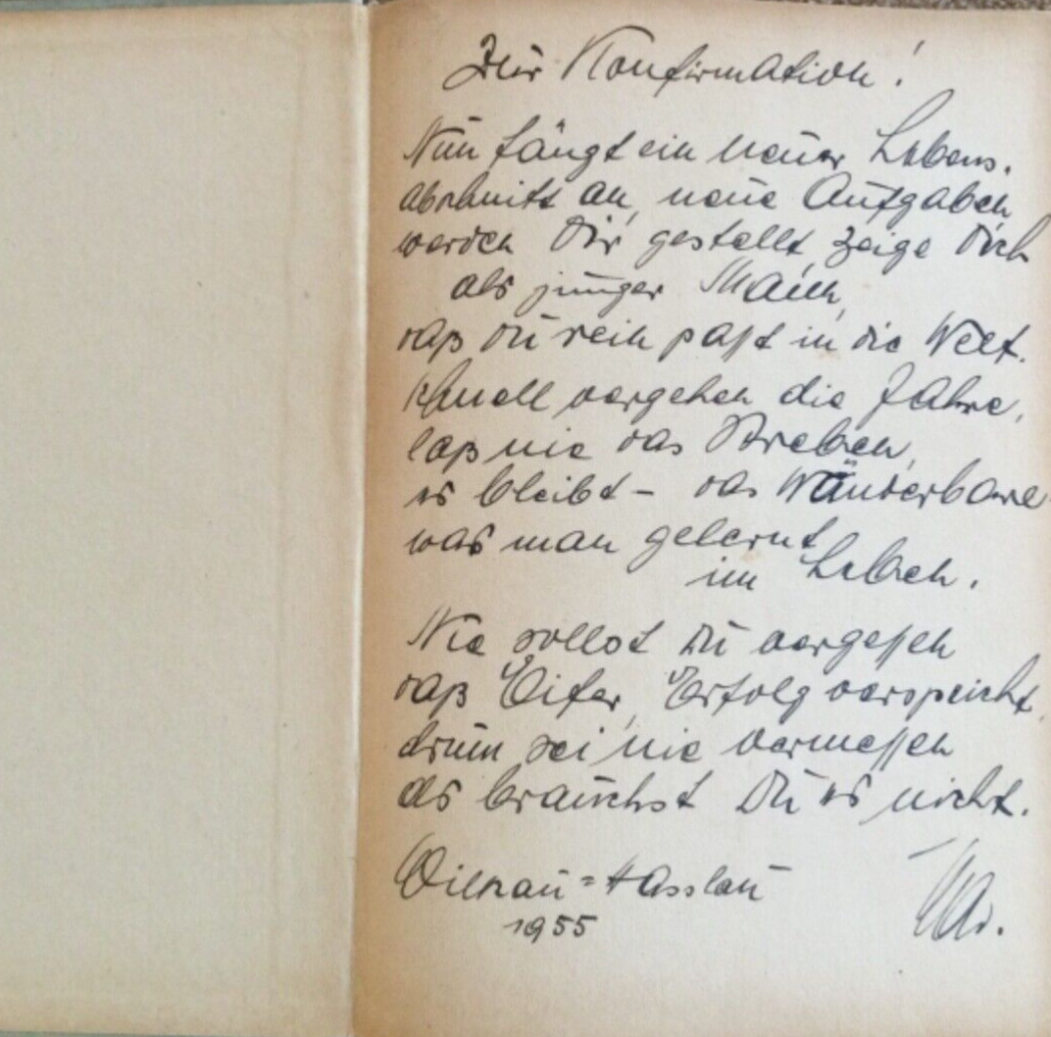 Zur Konfirmation!
Nun fängt ein neuer Lebens-
abschnitt an, neue Aufgaben
werden Dir gestellt, zeige Dich
als junger Mann,
daß Du rein paßt in die Welt.
Schnell vergehen die Jahre,
laß nie das Streben,
es bleibt - das Wunderbare
was man gelernt
im Leben.
Nie sollst Du vergessen
daß Eifer, Erfolg verspricht,
drum sei nie vermessen
als brauchst Du es nicht.
Wilkau-Hasslau
1955